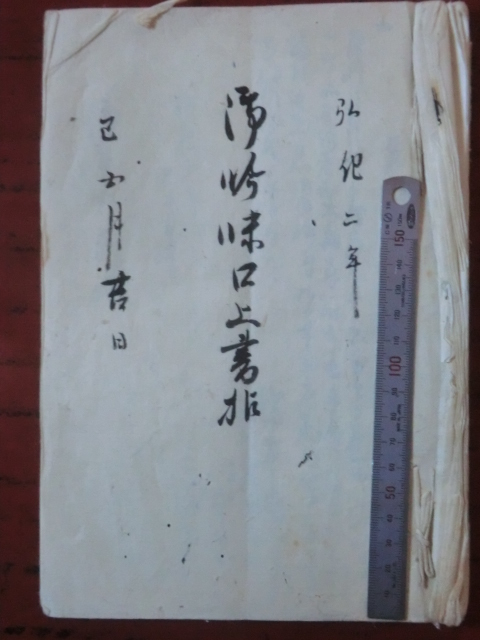 弘化二年
御吟味口上書扣
巳五月吉日
150
100
50